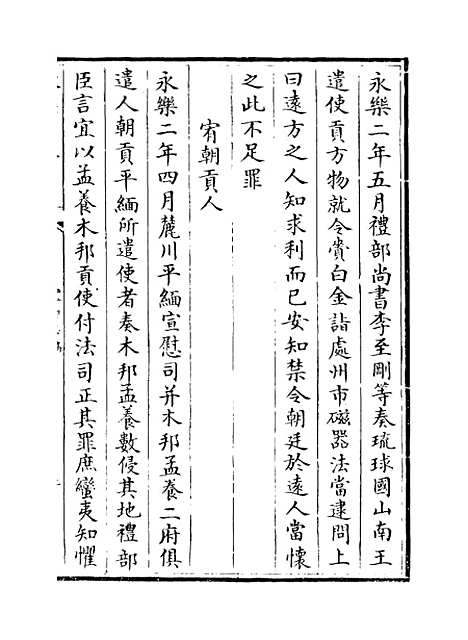 永樂二年五月禮部尚書李至剛等奏琉球國山南王
遣使貢方物就令賫白金詣處州市磁器法當逮問上
曰遠方之人知求利而已安知禁令朝廷於遠人當懷
之此不足罪
宥朝貢人
永樂二年四月麓川平緬宣慰司并木邦孟養二府俱
遣人朝貢平緬所遣使者奏木邦孟養數侵其地禮部
臣言宜以孟養木邦貢使付法司正其罪庶蠻夷知懼